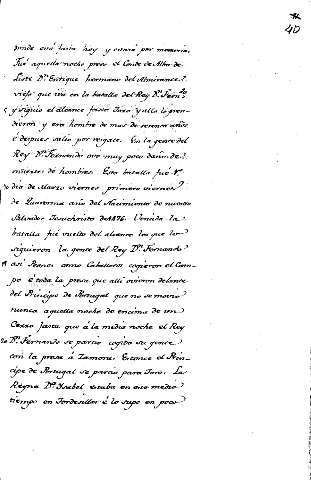 40
puede casi hasta hoy y estará por memoria
Fué aquella noche preso el Conde de Alba de
Liste Dn. Enrique hermano del Almirante
viejo que iva en la batalla del Rey Dn. Fern.do
y siguió el alcance fasta Toro y alla lo pren-
dieron y era hombre de mas de setenta años
é despues salió por rescate. En la gente del
Rey Dn. Fernando ovo muy poco daño de
muertes de hombres. Esta batalla fué
dia de Marzo viernes primero viernes
de Quaresma año del Nacimiento de nuestro
Salvador Jesuchristo de 1476. Venida la
batalla fué vuelto del alcance los que lo
siguieron la gente del Rey Dn. Fernando
asi Peones como Caballeros cogieron el Cam-
po é toda la presa que alli ovieron delante
del Principe de Portugal que no se movio
nunca aquella noche de encima de un
Cerro fasta que a la media noche el Rey
Dn. Fernando se partio cogida su gente
con la presa á Zamora. Entonce el Prin-
cipe de Portugal se partio para Toro. La
Reyna Da. Ysabel estaba en ese medio
tiempo en Tordesillas é lo supo en poco